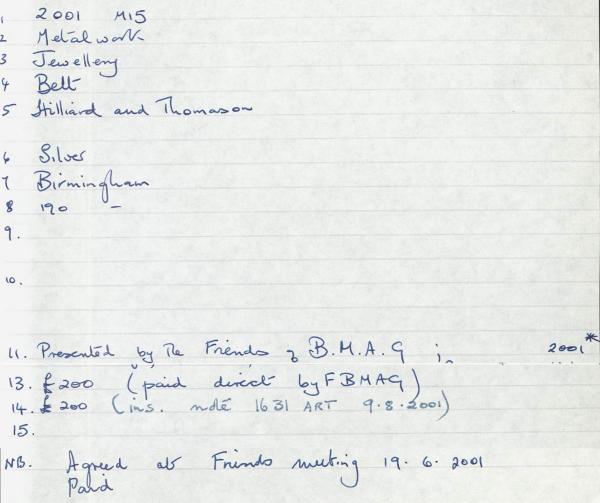 1 2001 M15
2 Metalwork
3 Jewellery
4 Belt
5 Hilliard and Thomason
6 Silver
7 Birmingham
8 190 -
9.
10.
11. Presented by the Friends of B.M.A.G in 2001*
13. £200 (paid direct by FBMAG)
14. £200 (ins. note 1631 ART 9.8.2001)
15.
NB. Agreed at Friends meeting 19.6.2001
Paid